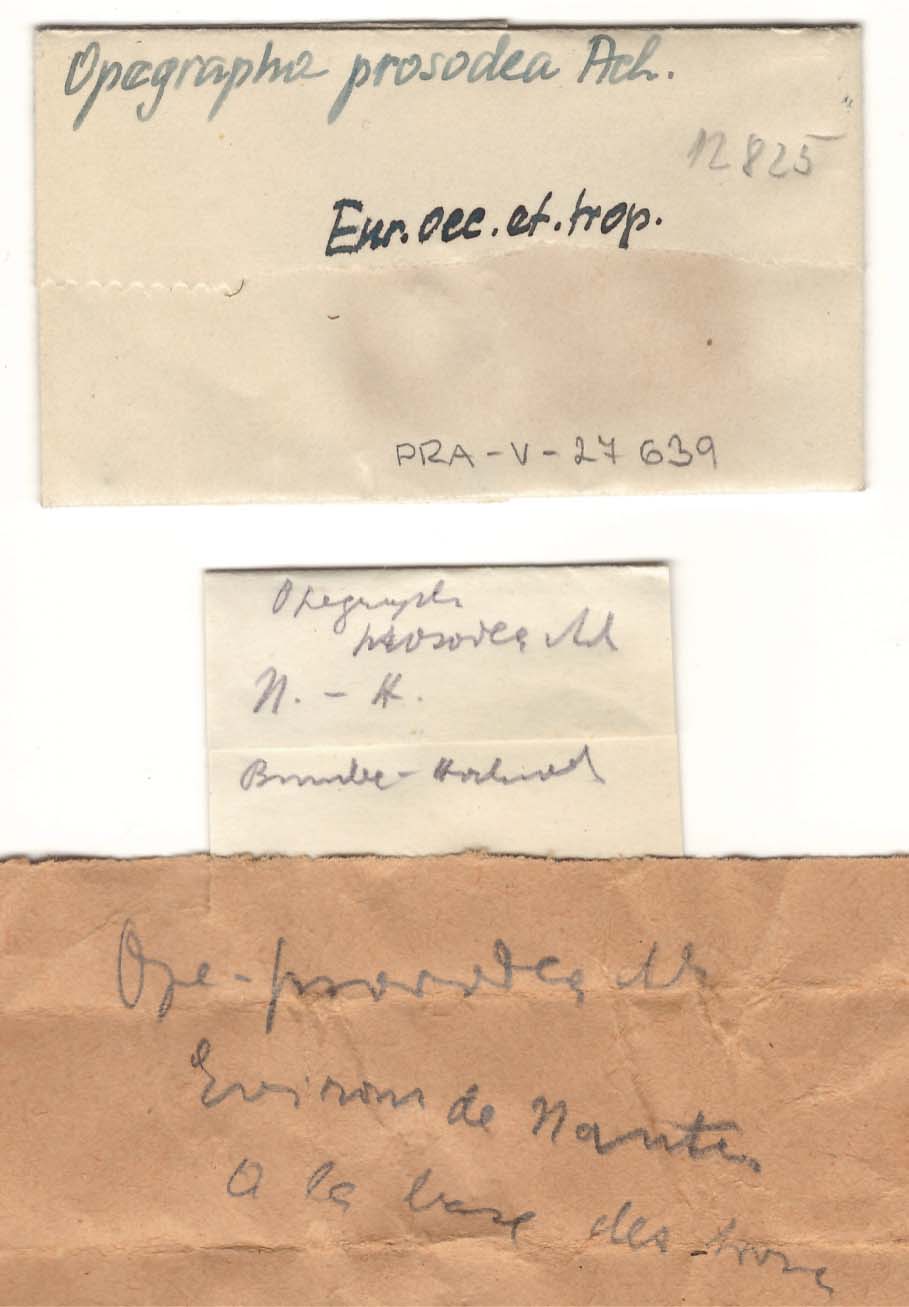 Opegrapha prosodea Ach.
12825
Eur. occ. et. trop.
PRA-V-27639
Opegrapha
prosodea Ach
N. - H.
Ope- prosodea Ach
Environs de Nantes
A la base des